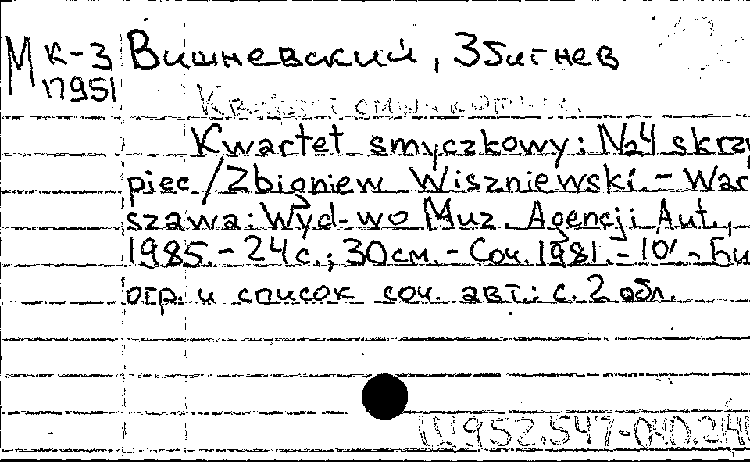 М к-3 Вишневский, Збигнев
17951
Kwartet smyczkowy: Na 4 skrzy
piec / Zbigniew Wiszniewski. - War
szawa: Wyd-wo Muz. Agencji Aut.,
1985. - 24 с.; 30 см. - Соч. 1981. - 10'. - Би
огр. и список соч. авт.: с. 2 обл.
Ш952.547-040.24